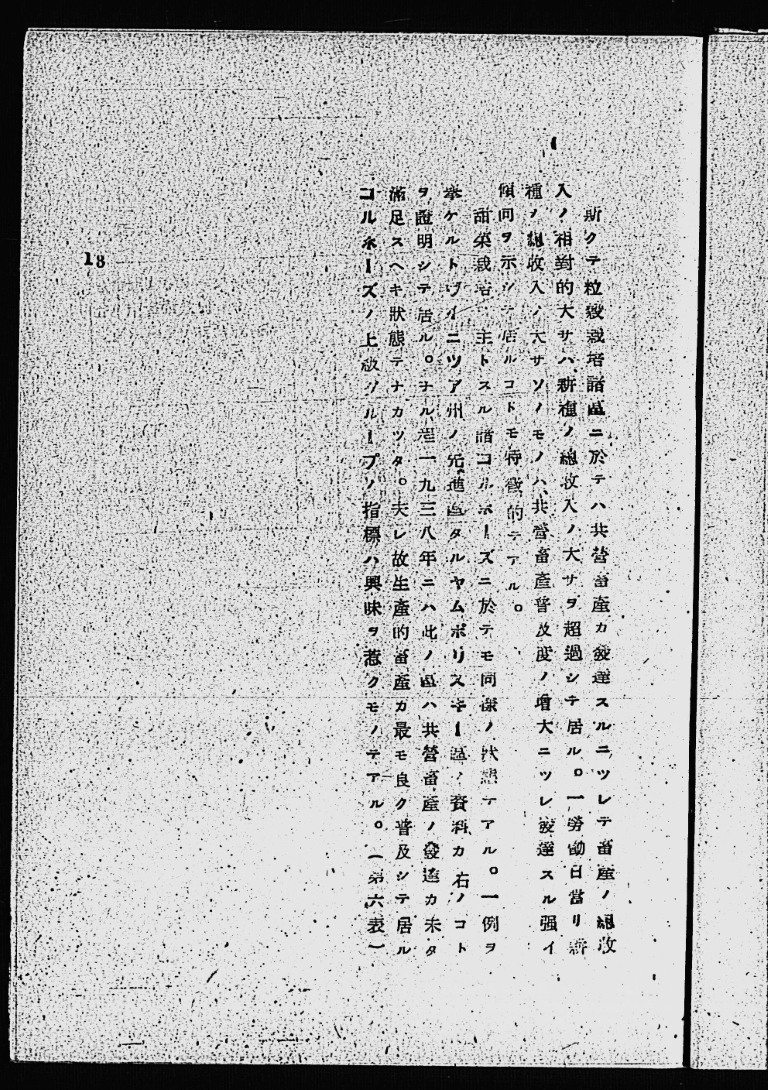 斯クテ粒穀栽培諸區ニ於テハ共營畜產カ發達スルニツレテ畜產ノ總收
入ノ相對的大サハ耕種ノ總收入ノ大サヲ超過シテ居ル。一勞働日當リ耕
種ノ總收入ノ大サソノモノハ共營畜產普及度ノ增大ニツレ發達スル强イ
傾向ヲ示シテ居ルコトモ特徵的テアル。
甜菜栽培ヲ主トスル諸コルホーズニ於テモ同樣ノ狀態テアル。一例ヲ
擧ケルトヴイニツア州ノ先進區タルヤムポリスキー區ノ資料カ右ノコト
ヲ證明シテ居ル。ナル程一九三八年ニハ此ノ區ハ共營畜產ノ發達カ未タ
滿足スヘキ狀態テナカツタ。夫レ故生產的畜產カ最モ良ク普及シテ居ル
コルホーズノ上級グループノ指標ハ興味ヲ惹クモノテアル。(第六表)
18